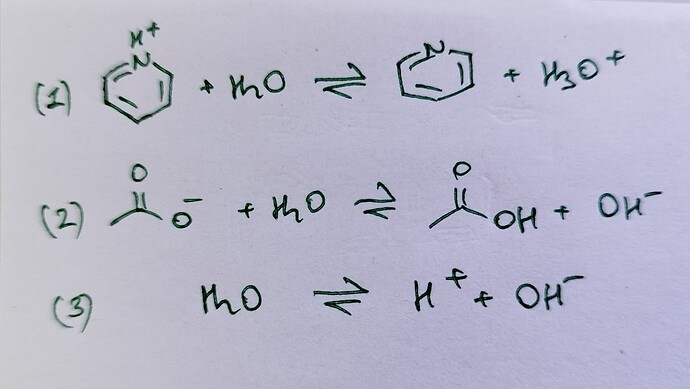 (1) N H+ + H2O ⇌ N + H3O+
(2) O O− + H2O ⇌ O OH + OH−
(3) H2O ⇌ H+ + OH−